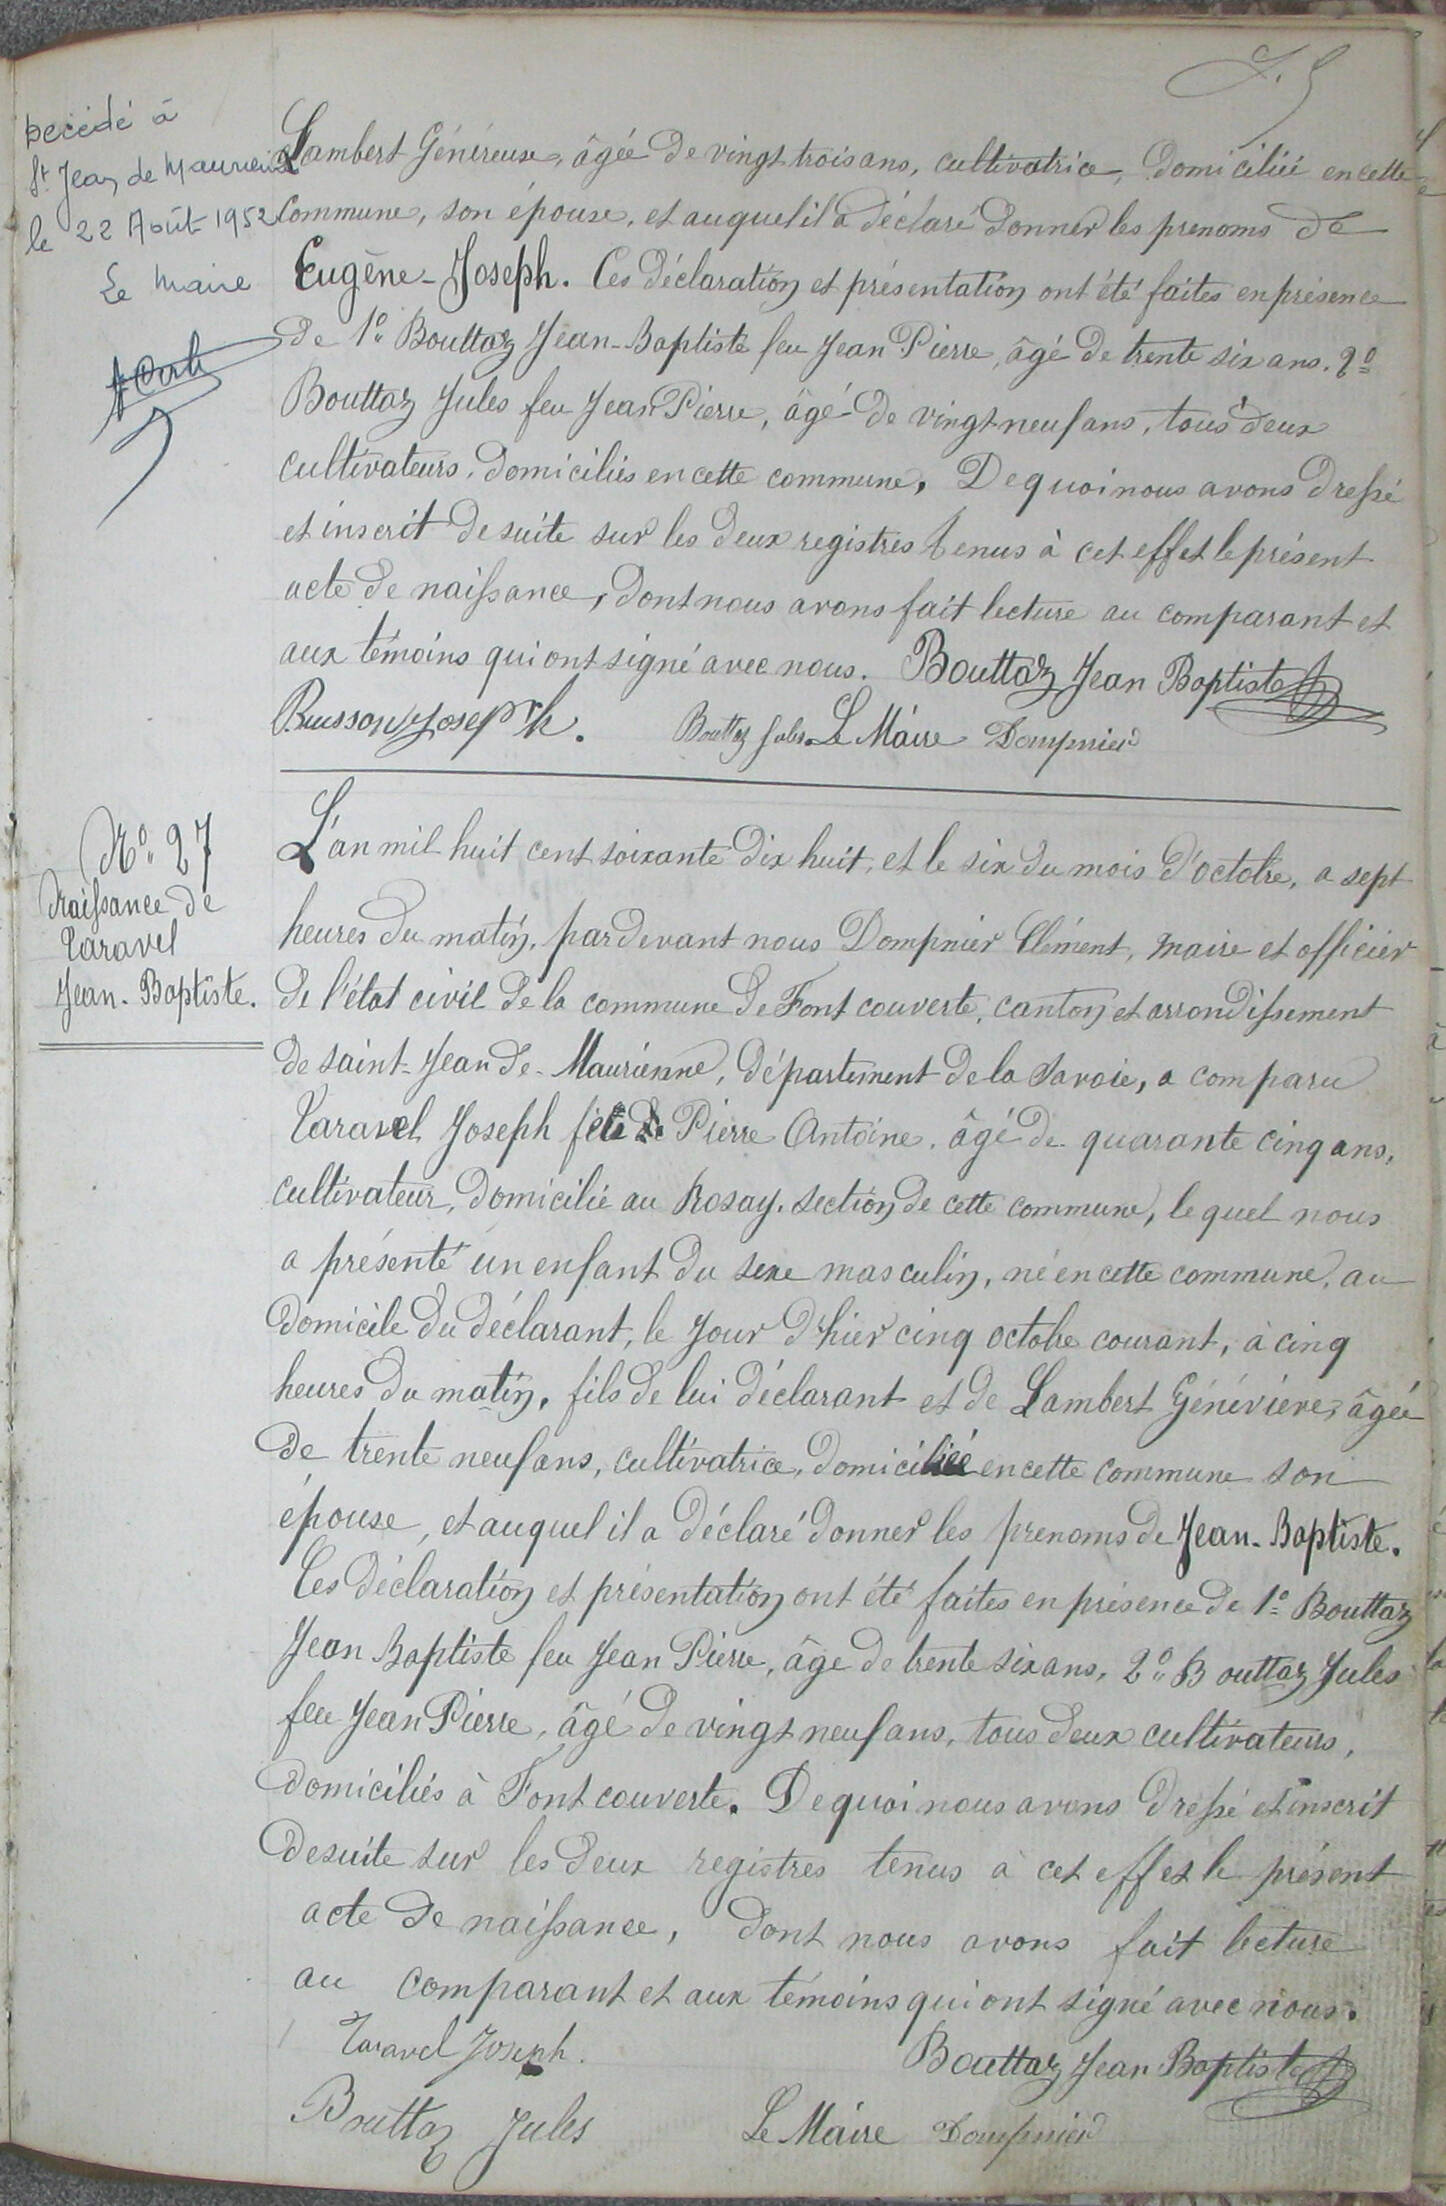 Décédé à
St Jean de Maurienne
le 22 Août 1952
Le Maire
Lambert Généreuse, âgée de vingt trois ans, cultivatrice, domiciliée en cette
commune, son épouse, et auquel il a déclaré donner les prenoms de
Eugène-Joseph. Ces déclaration et présentation ont été faites en présence
de 1° Bouttaz Jean-Baptiste feu Jean Pierre, âgé de trente six ans. 2°
Bouttaz Jules feu Jean Pierre, âgé de vingt neuf ans, tous deux
cultivateurs, domiciliés en cette commune. De quoi nous avons dressé
et inscrit de suite sur les deux registres tenus à cet effet le présent
acte de naissance, dont nous avons fait lecture au comparant et
aux témoins qui ont signé avec nous. Bouttaz Jean Baptiste
Buisson Joseph. Bouttaz Jules Le Maire Dompnier
N° 27
Naissance de
Taravel
Jean-Baptiste.
L'an mil huit cent soixante dix huit, et le six du mois d'octobre, a sept
heures du matin, pardevant nous Dompnier Clément, maire et officier
de l'état civil de la commune de Font couverte, canton et arrondissement
de saint-Jean de-Maurienne, département de la Savoie, a comparu
Taravel Joseph Pierre Antoine, âgé de quarante cinq ans,
cultivateur, domicilié au Rosay, section de cette commune, le quel nous
a présenté un enfant du sexe masculin, né en cette commune, au
domicile du déclarant, le jour d'hier cinq octobre courant, à cinq
heures du matin, fils de lui déclarant et de Lambert Généviève, âgée
de trente neuf ans, cultivatrice, domiciliée en cette commune son
épouse, et auquel il a déclaré donner les prenoms de Jean-Baptiste.
Ces déclaration et présentation ont été faites en présence de 1° Bouttaz
Jean Baptiste feu Jean Pierre, âge de trente six ans, 2° Bouttaz Jules
feu Jean Pierre, âgé de vingt neuf ans, tous deux cultivateurs,
domiciliés à Font couverte. De quoi nous avons dressé et inscrit
de suite sur les deux registres tenus à cet effet le présent
acte de naissance, dont nous avons fait lecture
au comparant et aux témoins qui ont signé avec nous.
Taravel Joseph. Bouttaz Jean Baptiste
Bouttaz Jules Le Maire Dompnier